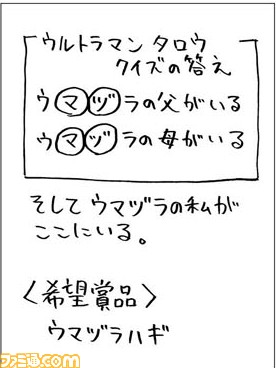 ウルトラマンタロウ
クイズの答え
ウマヅラの父がいる
ウマヅラの母がいる
そしてウマヅラの私が
ここにいる。
〈希望賞品〉
ウマヅラハギ
ファミ通.com